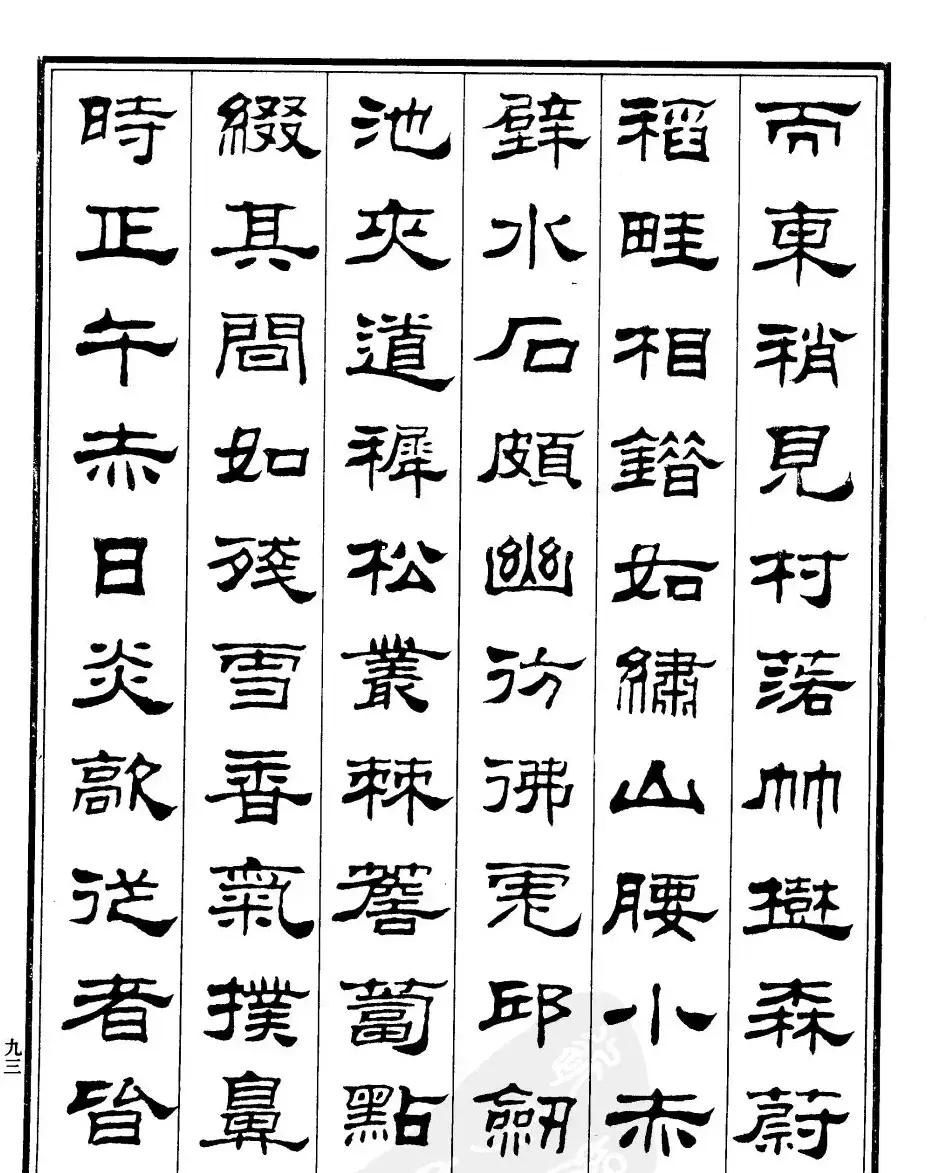 而東稍見村落竹樹森蔚
稻畦相錯如繡山腰小赤
壁水石頗幽彷彿虎邱劒
池夾道穉松叢棘薝蔔點
綴其間如殘雪香氣撲鼻
時正午赤日炎歊從者皆
九三